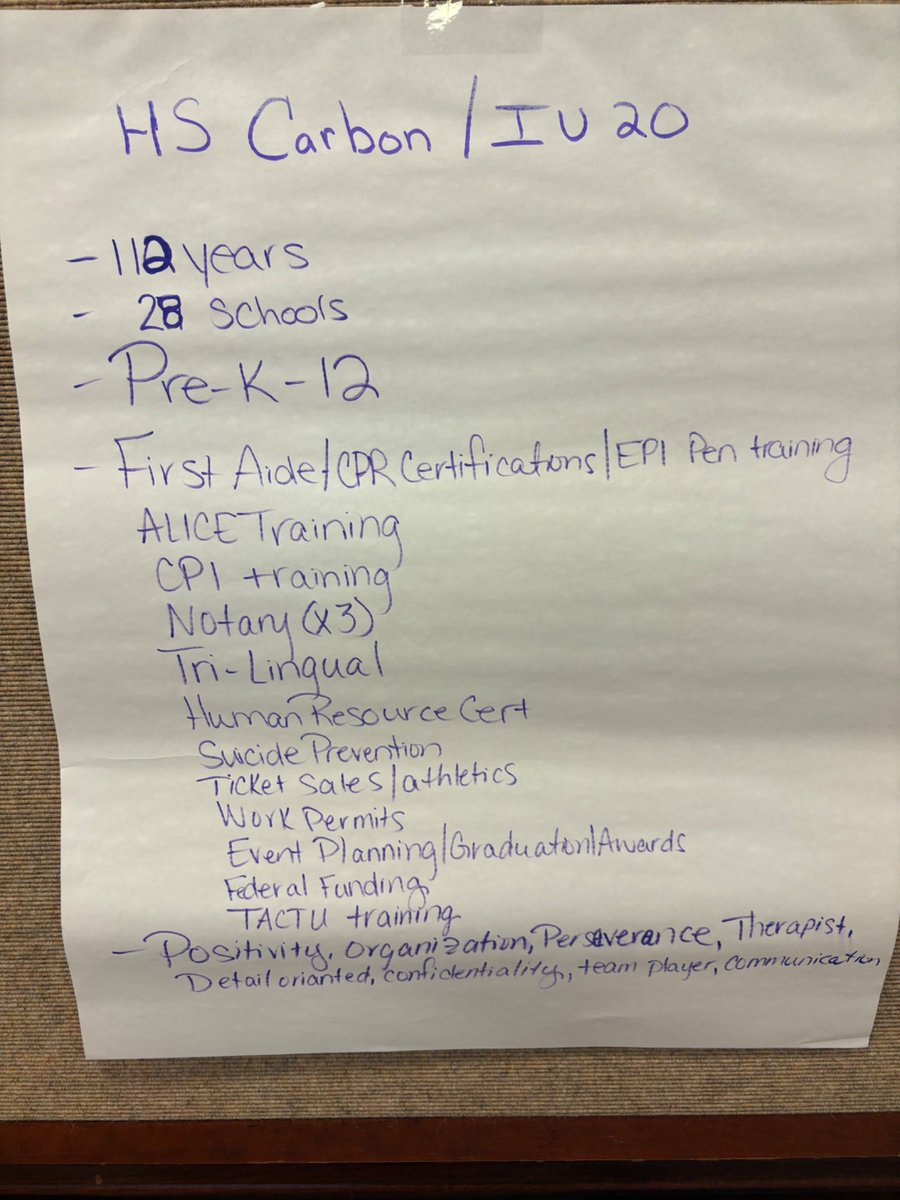 HS Carbon / IU 20
- 112 years
- 28 Schools
- Pre-K-12
- First Aide/CPR Certifications/EPI Pen training
ALICE Training
CPI training
Notary (x3)
Tri-Lingual
Human Resource Cert
Suicide Prevention
Ticket Sales/athletics
Work Permits
Event Planning/Graduation/Awards
Federal Funding
TACTU training
- Positivity, organization, Perseverance, Therapist,
Detail orianted, confidentiality, team player, communication